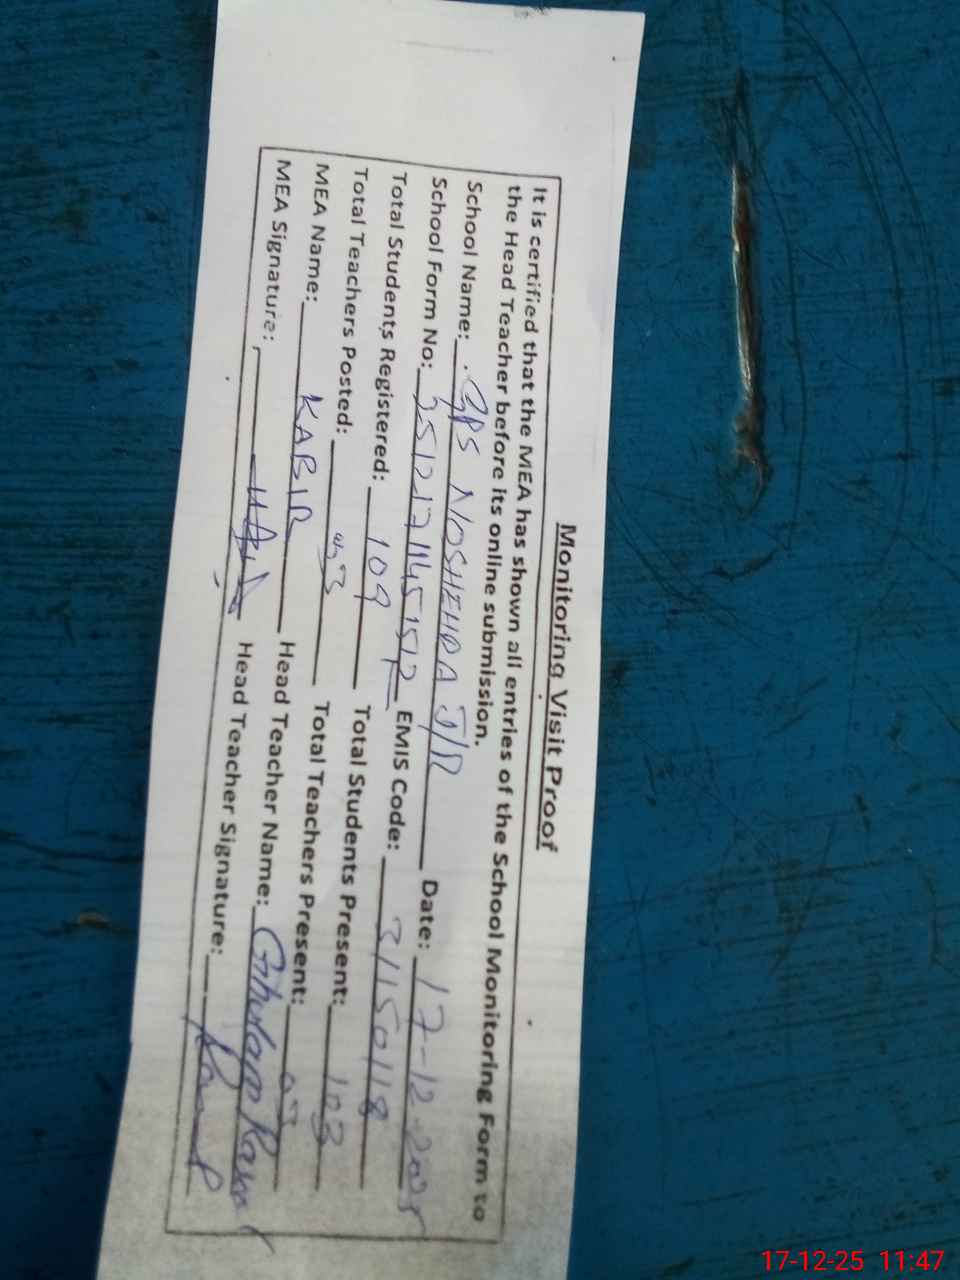 Monitoring Visit Proof
It is certified that the MEA has shown all entries of the School Monitoring Form to
the Head Teacher before its online submission.
School Name: GPS NOSHEHRA J/R Date: 17-12-2025
School Form No: EMIS Code: 31150118
Total Students Registered: 109 Total Students Present: 103
Total Teachers Posted: 03 Total Teachers Present: 03
MEA Name: KABIR Head Teacher Name: Ghulam Rasool
MEA Signature: Head Teacher Signature:
17-12-25 11:47